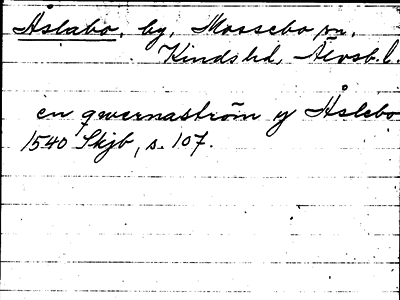 Åslabo, by, Mossebo sn.
Kinds hd, Älvsb. l.
en qwernaström y Åslebo
1540 Skjb, s. 107.